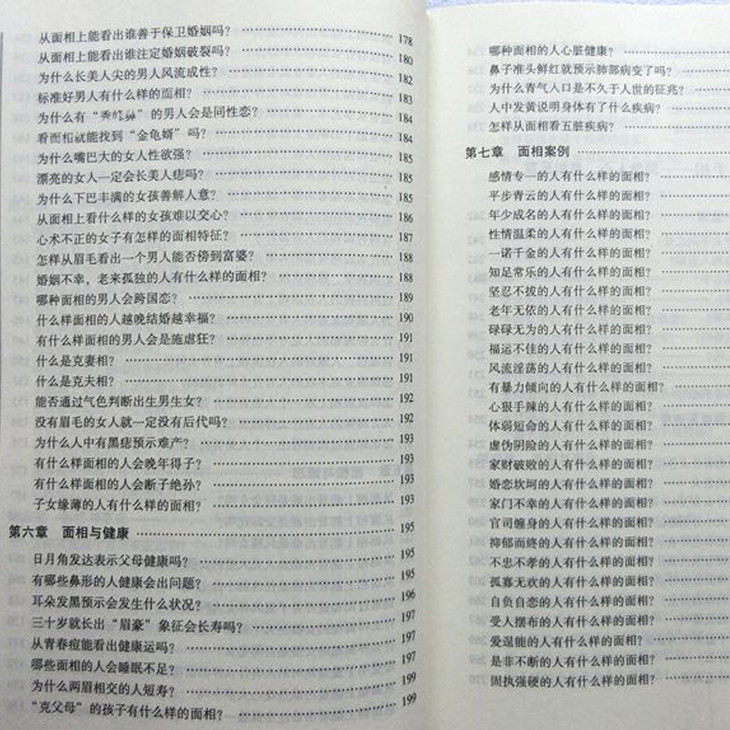 从面相上能看出谁善于保卫婚姻吗? 178
从面相上能看出谁注定婚姻破裂吗? 180
为什么长美人尖的男人风流成性? 182
标准好男人有什么样的面相? 183
为什么有“秀峰鼻”的男人会是同性恋? 184
看面相就能找到“金龟婿”吗? 184
为什么嘴巴大的女人性欲强? 185
漂亮的女人一定会长美人痣吗? 185
为什么下巴丰满的女孩善解人意? 185
从面相上看什么样的女孩难以交心? 186
心术不正的女子有怎样的面相特征? 187
怎样从眉毛看出一个男人能否傍到富婆? 188
婚姻不幸,老来孤独的人有什么样的面相? 188
哪种面相的男人会跨国恋? 189
什么样面相的人越晚结婚越幸福? 190
有什么样面相的男人会是施虐狂? 191
什么是克妻相? 191
什么是克夫相? 191
能否通过气色判断出生男生女? 192
没有眉毛的女人就一定没有后代吗? 192
为什么人中有黑痣预示难产? 193
有什么样面相的人会晚年得子? 193
有什么样面相的人会断子绝孙? 193
子女缘薄的人有什么样的面相? 193
第六章 面相与健康 195
日月角发达表示父母健康吗? 195
有哪些鼻形的人健康会出问题? 195
耳朵发黑预示会发生什么状况? 196
三十岁就长出“眉豪”象征会长寿吗? 197
从青春痘能看出健康运吗? 197
哪些面相的人会睡眠不足? 197
为什么两眉相交的人短寿? 199
“克父母”的孩子有什么样的面相? 199
哪种面相的人心脏健康?
鼻子准头鲜红就预示肺部病变了吗?
为什么青气入口是不久于人世的征兆?
人中发黄说明身体有了什么疾病?
怎样从面相看五脏疾病?
第七章 面相案例
感情专一的人有什么样的面相?
平步青云的人有什么样的面相?
年少成名的人有什么样的面相?
性情温柔的人有什么样的面相?
一诺千金的人有什么样的面相?
知足常乐的人有什么样的面相?
坚忍不拔的人有什么样的面相?
老年无依的人有什么样的面相?
碌碌无为的人有什么样的面相?
福运不佳的人有什么样的面相?
风流淫荡的人有什么样的面相?
有暴力倾向的人有什么样的面相?
心狠手辣的人有什么样的面相?
体弱短命的人有什么样的面相?
虚伪阴险的人有什么样的面相?
家财破败的人有什么样的面相?
婚恋坎坷的人有什么样的面相?
家门不幸的人有什么样的面相?
官司缠身的人有什么样的面相?
抑郁而终的人有什么样的面相?
不忠不孝的人有什么样的面相?
孤寡无欢的人有什么样的面相?
自负自恋的人有什么样的面相?
受人摆布的人有什么样的面相?
爱逞能的人有什么样的面相?
是非不断的人有什么样的面相?
固执强硬的人有什么样的面相?